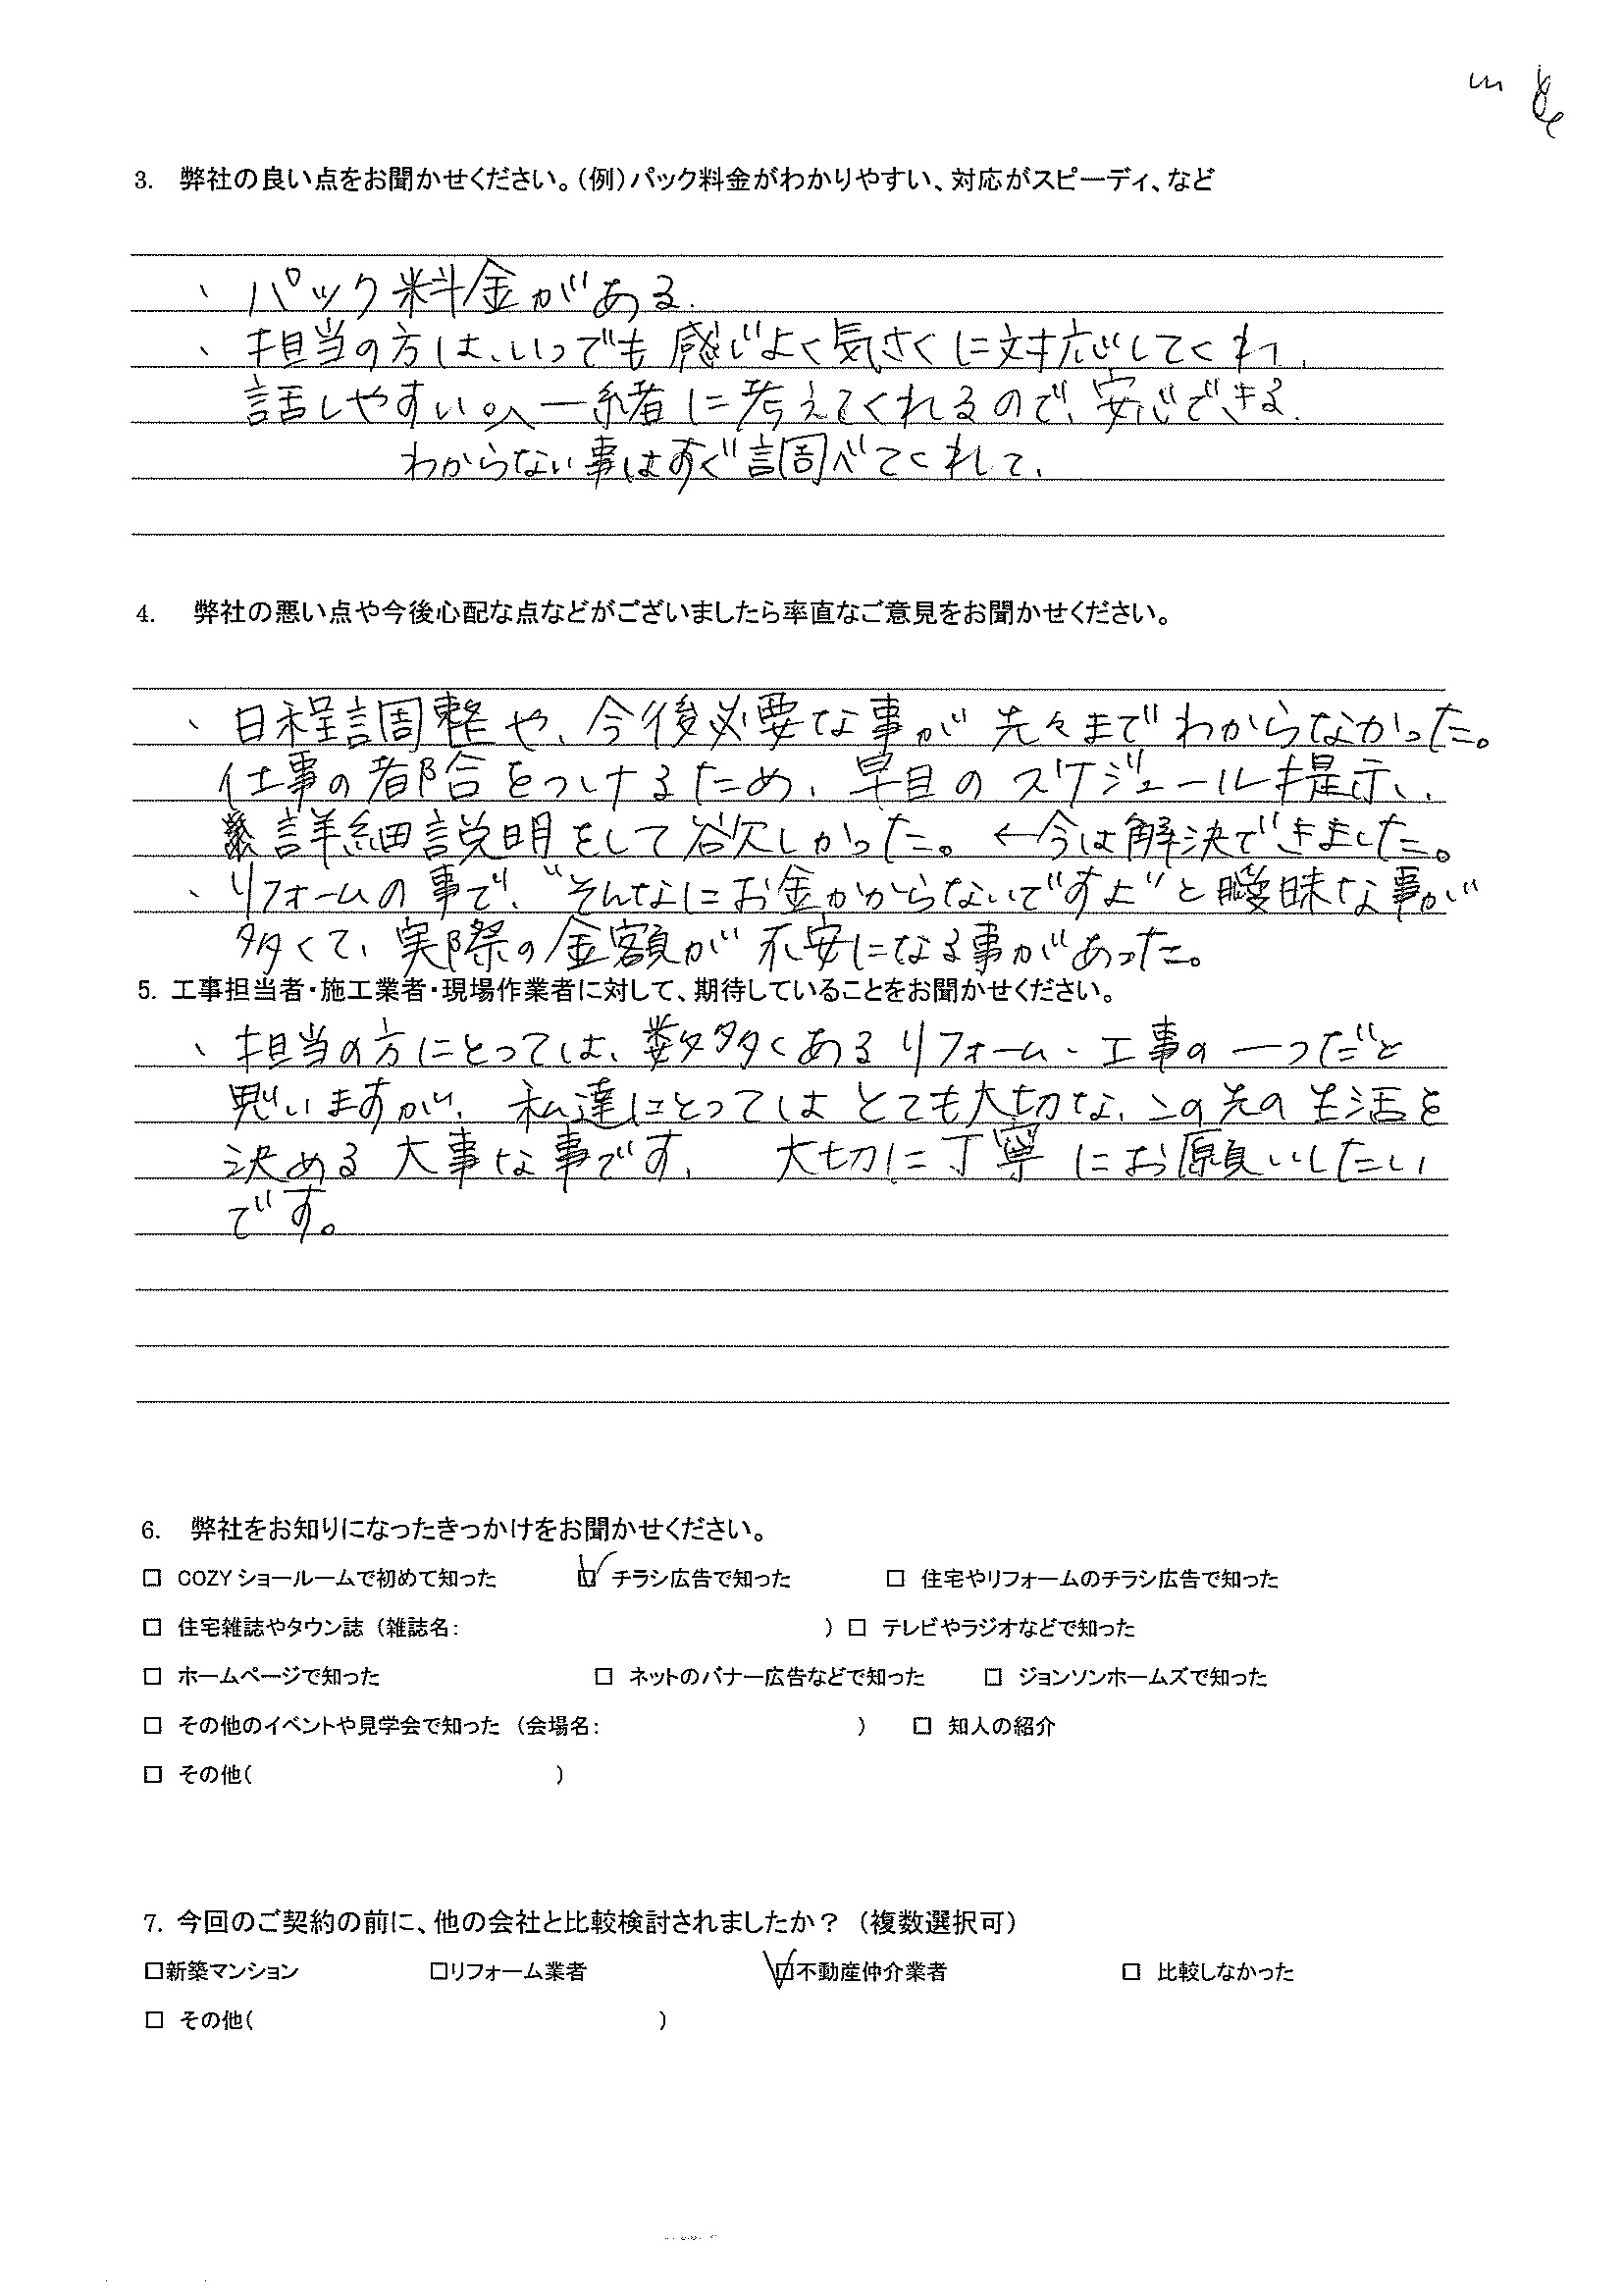 3. 弊社の良い点をお聞かせください。（例）パック料金がわかりやすい、対応がスピーディ、など
、パック料金がある.
、担当の方は、いつでも感じよく気さくに対応してくれ、
話しやすい。一緒に考えてくれるので、安心できる.
わからない事はすぐ調べてくれして、
4. 弊社の悪い点や今後心配な点などがございましたら率直なご意見をお聞かせください。
、日程調整や、今後必要な事が先々までわからなかった。
仕事の都合をつけるため、早目のスケジュール提示、
詳細説明をして欲しかった。←今は解決できました。
、リフォームの事で、“そんなにお金かからないですよ”と曖昧な事が
多くて、実際の金額が不安になる事があった。
5. 工事担当者・施工業者・現場作業者に対して、期待していることをお聞かせください。
、担当の方にとっては、数多くあるリフォーム・工事の一つだと
思いますが、私達にとってはとても大切な、この先の生活を
決める大事な事です. 大切に丁寧にお願いしたい
です。
6. 弊社をお知りになったきっかけをお聞かせください。
□ COZYショールームで初めて知った ☑ チラシ広告で知った □ 住宅やリフォームのチラシ広告で知った
□ 住宅雑誌やタウン誌（雑誌名： ）□ テレビやラジオなどで知った
□ ホームページで知った □ ネットのバナー広告などで知った □ ジョンソンホームズで知った
□ その他のイベントや見学会で知った（会場名： ） □ 知人の紹介
□ その他( )
7. 今回のご契約の前に、他の会社と比較検討されましたか？（複数選択可）
□新築マンション □リフォーム業者 ☑不動産仲介業者 □ 比較しなかった
□ その他( )